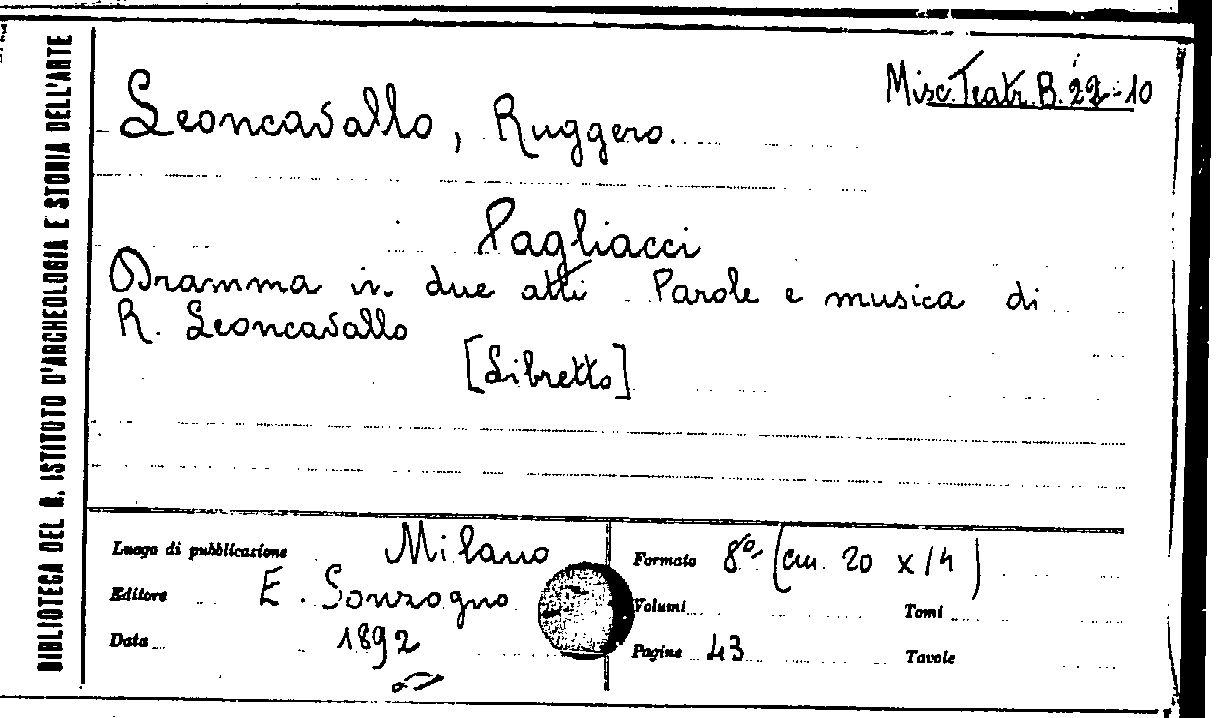 BIBLIOTECA DEL R. ISTITUTO D'ARCHEOLOGIA E STORIA DELL'ARTE
Misc. Teatr. B. 22-10
Leoncavallo, Ruggero.
Pagliacci
Dramma in due atti Parole e musica di
R. Leoncavallo
[Libretto]
Luogo di pubblicazione Milano
Editore E. Sonzogno
Data 1892
Formato 8º. (cm. 20 x 14)
Volumi Tomi
Pagine 43 Tavole